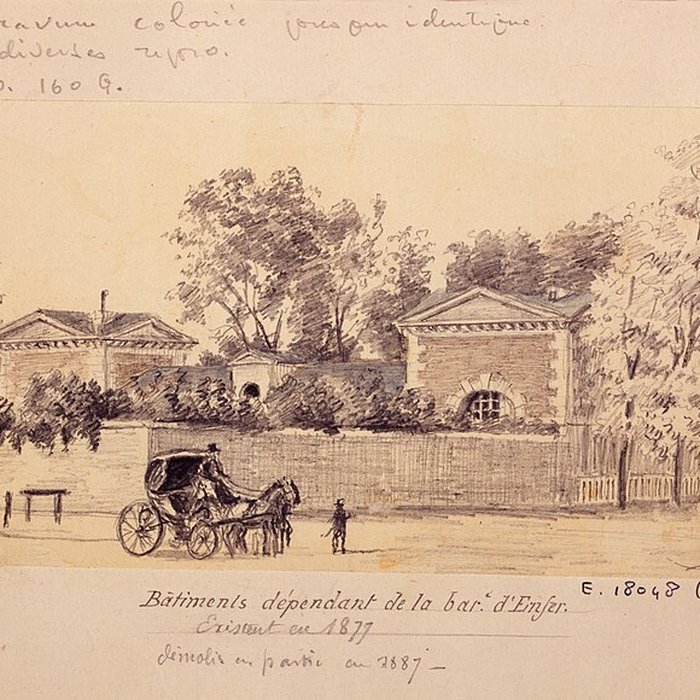 gravure coloriée presque identique.
diverses repro.
160 G.
E. 18048 (
Bâtiments dépendant de la bar.e d'Enfer.
Existent en 1877
démolis en partie en 1887 -